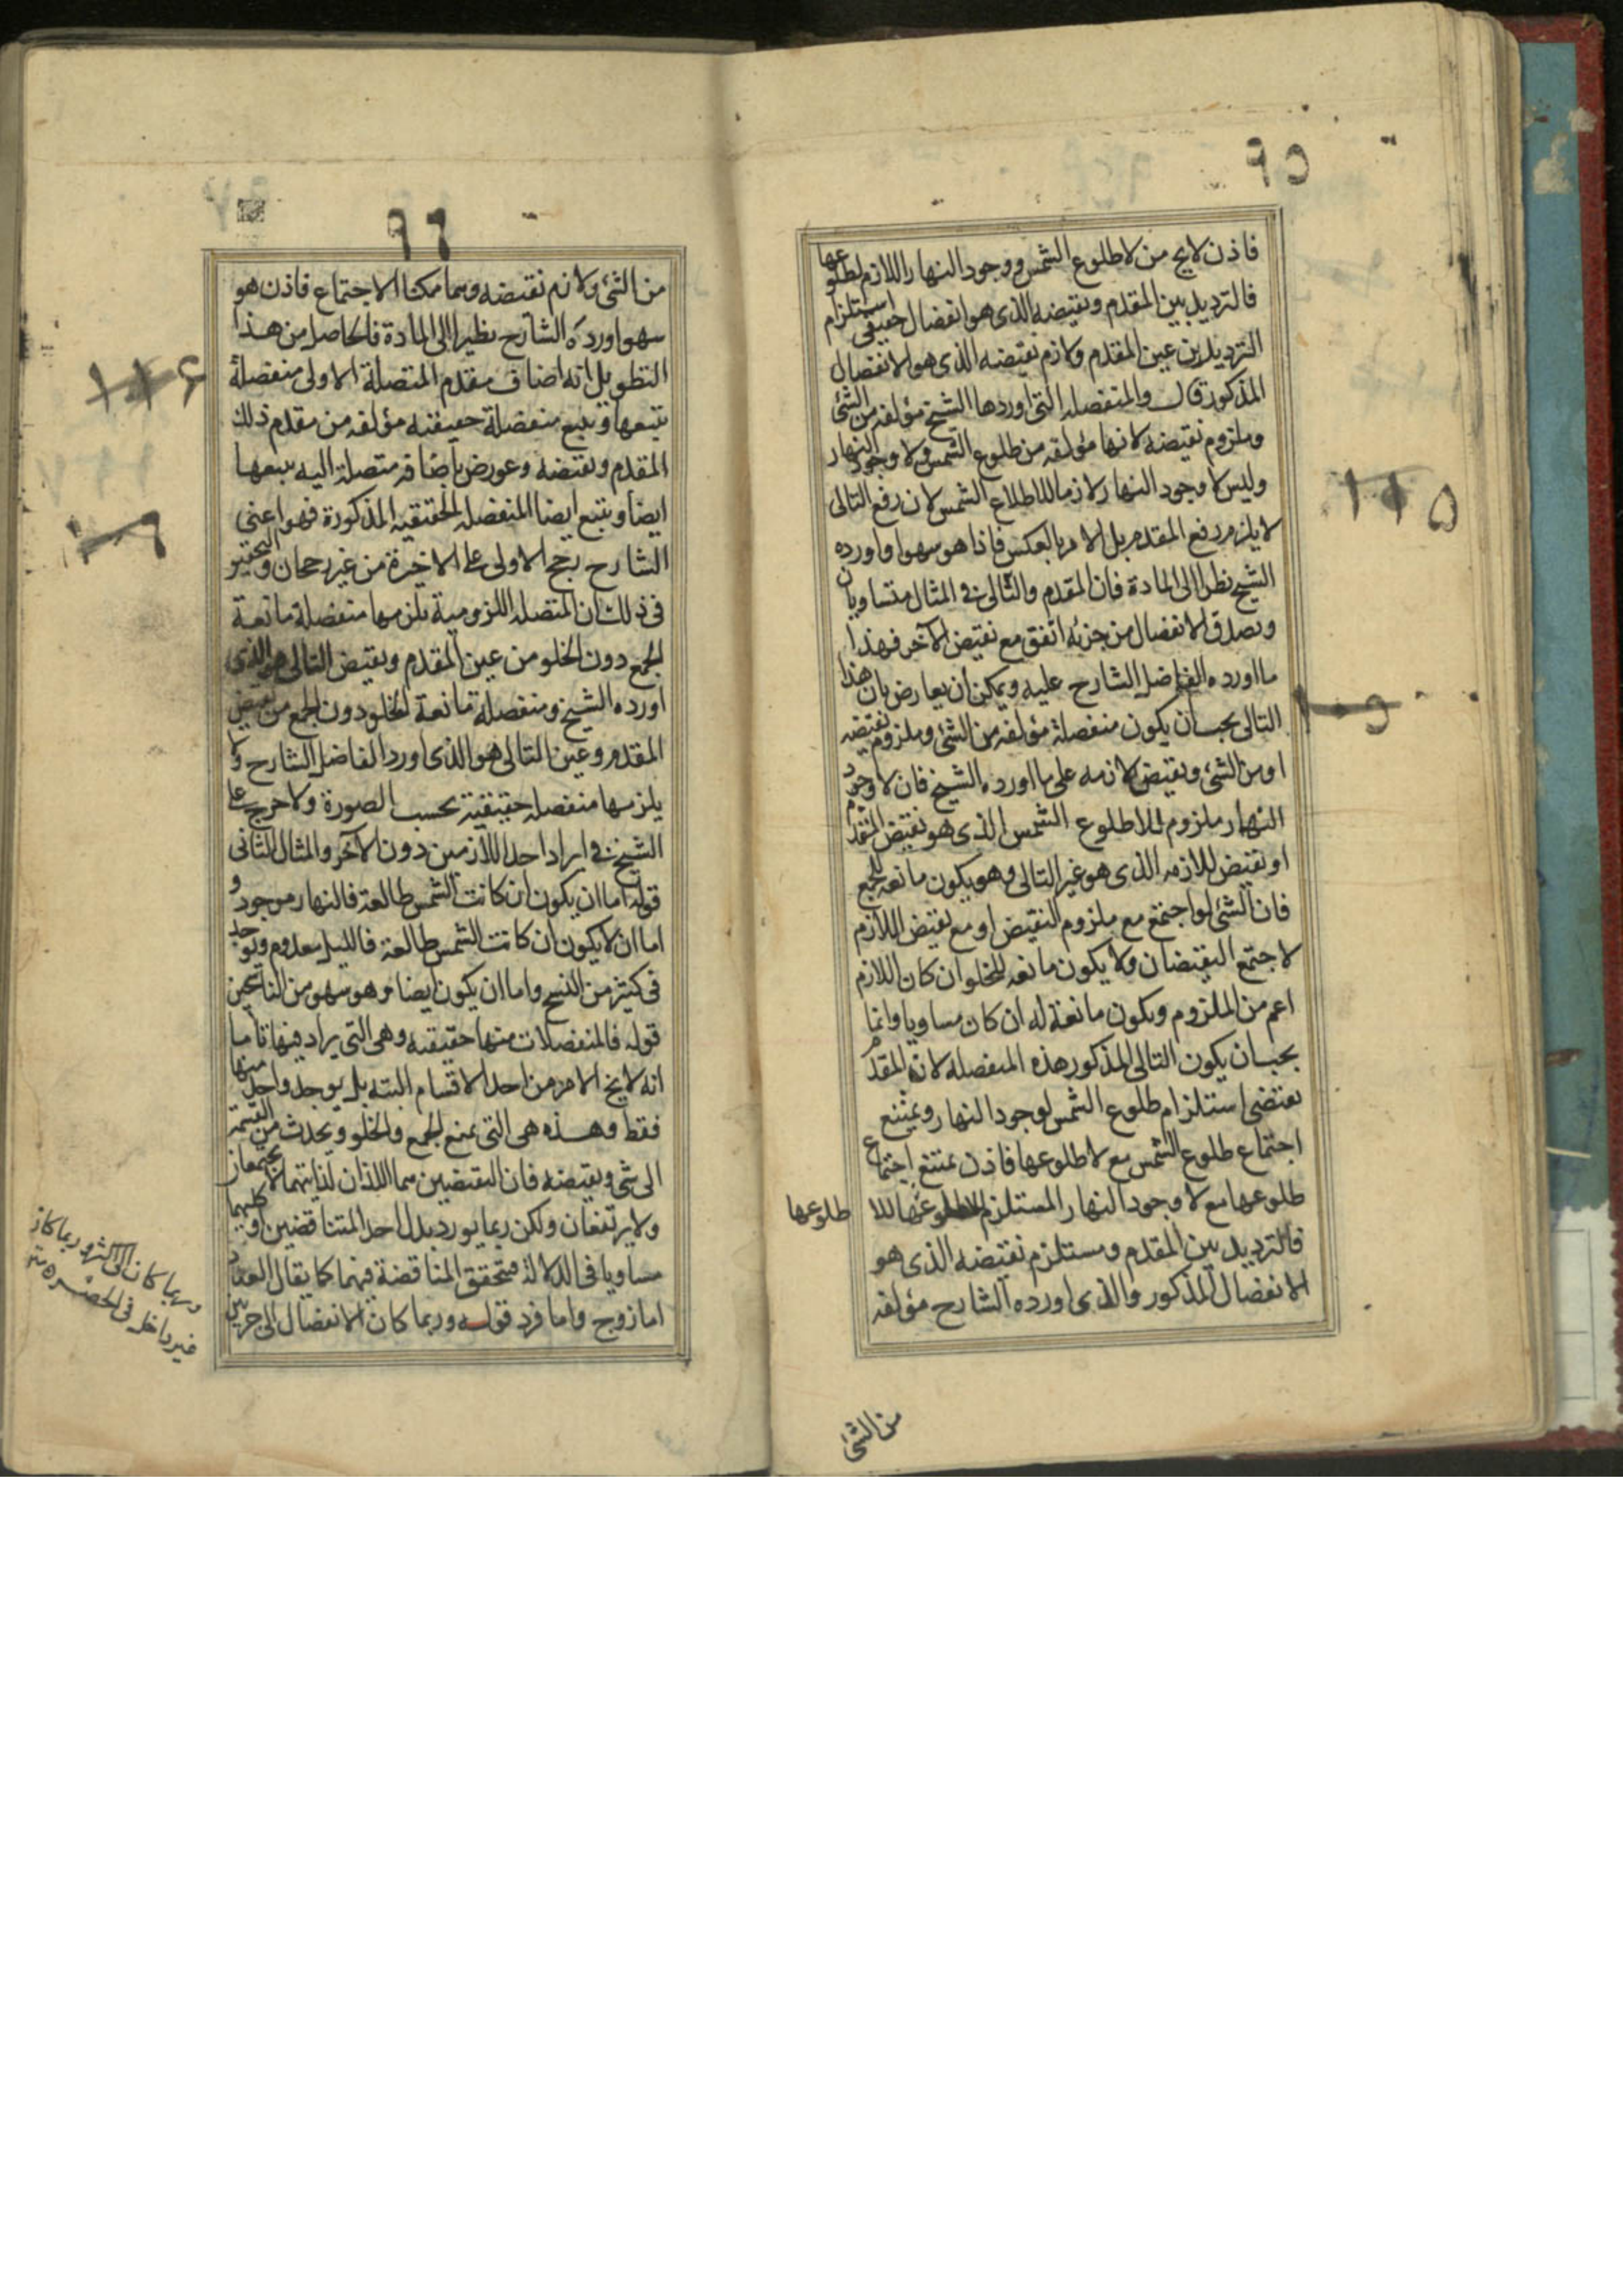 ٩٥
فاذن لايخ من لاطلوع الشمس ووجود النهار اللازم لطلوعها
فالترديد بين المقدم ونقيضه الذى هو انفصال حقيقى استلزام
الترديد بين عين المقدم ولازم نقيضه الذى هو الانفصال
المذكور قال والمنفصله التى اوردها الشيخ مؤلفه من الشئ
وملزوم نقيضه لانها مؤلفه من طلوع الشمس ولا وجود النهار
وليس لا وجود النهار لازما للاطلاع الشمس لان رفع التالى
لايلزم رفع المقدم بل الامر بالعكس فاذا هو سهو او اورده
الشيخ نظرا الى المادة فان المقدم والتالى فى المثال متساويان
وبصدق الانفصال من جزئه اتفق مع نقيض الآخر فهذا
ما اورده الفاضل الشارح عليه ويمكن ان يعارض بان هذا
التالى يجب ان يكون منفصلة مؤلفه من الشئ وملزوم نقيضه
او من الشئ ونقيض لازمه على ما اورده الشيخ فان لا وجود
النهار ملزوم للاطلوع الشمس الذى هو نقيض المقدم
او نقيض للازمه الذى هو غير التالى وهو يكون مانعه للجمع
فان الشئ لو اجتمع مع ملزوم النقيض او مع نقيض اللازم
لاجتمع النقيضان ولا يكون مانعه للخلو ان كان اللازم
اعم من الملزوم ويكون مانعة له ان كان مساويا وانما
يجب ان يكون التالى المذكور هذه المنفصله لان المقدم
يقتضى استلزام طلوع الشمس لوجود النهار ويمتنع
اجتماع طلوع الشمس مع لاطلوعها فاذن يمتنع اجتماع
طلوعها مع لا وجود النهار المستلزم للا
طلوعها
فالترديد بين المقدم ومستلزم نقيضه الذى هو
الانفصال المذكور والذى اورده الشارح مؤلفه
من الشئ
١١٥
٩٦
من الشئ ولازم نقيضه وهما ممكنا الاجتماع فاذن هو
سهو اورده الشارح نظيرا الى المادة فالحاصل من هذا
التطويل انه اضاف مقدم المتصلة الاولى منفصلة
يتبعها ويتبع منفصلة حقيقته مؤلفه من مقدم ذلك
المقدم ونقيضه وعورض باضافه متصلة اليه يتبعها
ايضا ويتبع ايضا المنفصله الحقيقيه المذكورة فهو اعنى
الشارح يرجح الاولى على الاخيرة من غير رجحان والتحقيق
فى ذلك ان المتصله اللزومية يلزمها منفصلة مانعة
الجمع دون الخلو من عين المقدم ونقيض التالى هو الذى
اورده الشيخ ومنفصلة مانعة الخلو دون الجمع من نقيض
المقدم وعين التالى هو الذى اورد الفاضل الشارح ولا
يلزمها منفصله حقيقية بحسب الصورة ولا حرج على
الشيخ فى ايراد احد اللازمين دون الآخر والمثال الثانى
قوله اما ان يكون ان كانت الشمس طالعة فالنهار موجود و
اما ان لا يكون ان كانت الشمس طالعة فالليل معدوم ويوجد
فى كثير من النسخ واما ان يكون ايضا وهو سهو من الناسخين
قوله فالمنفصلات منها حقيقيه وهى التى يراد فيها باما
انه لا يخ الامر من احد الاقسام البته بل يوجد واحد منها
فقط وهذه هى التى يمنع الجمع والخلو ويحدث من القسمة
الى شئ ونقيضه فان النقيضين هما اللذان لذاتيهما لا يجتمعان
ولا يرتفعان ولكن ربما يورد بدل احد المتناقضين او كليهما
مساويا فى الدلالة فتحقق المناقضة فيهما كما يقال العدد
اما زوج واما فرد قوله وربما كان الانفصال الى جزئين
وربما كان الى اكثر وربما كان
غير داخل فى الحصر
١١۶